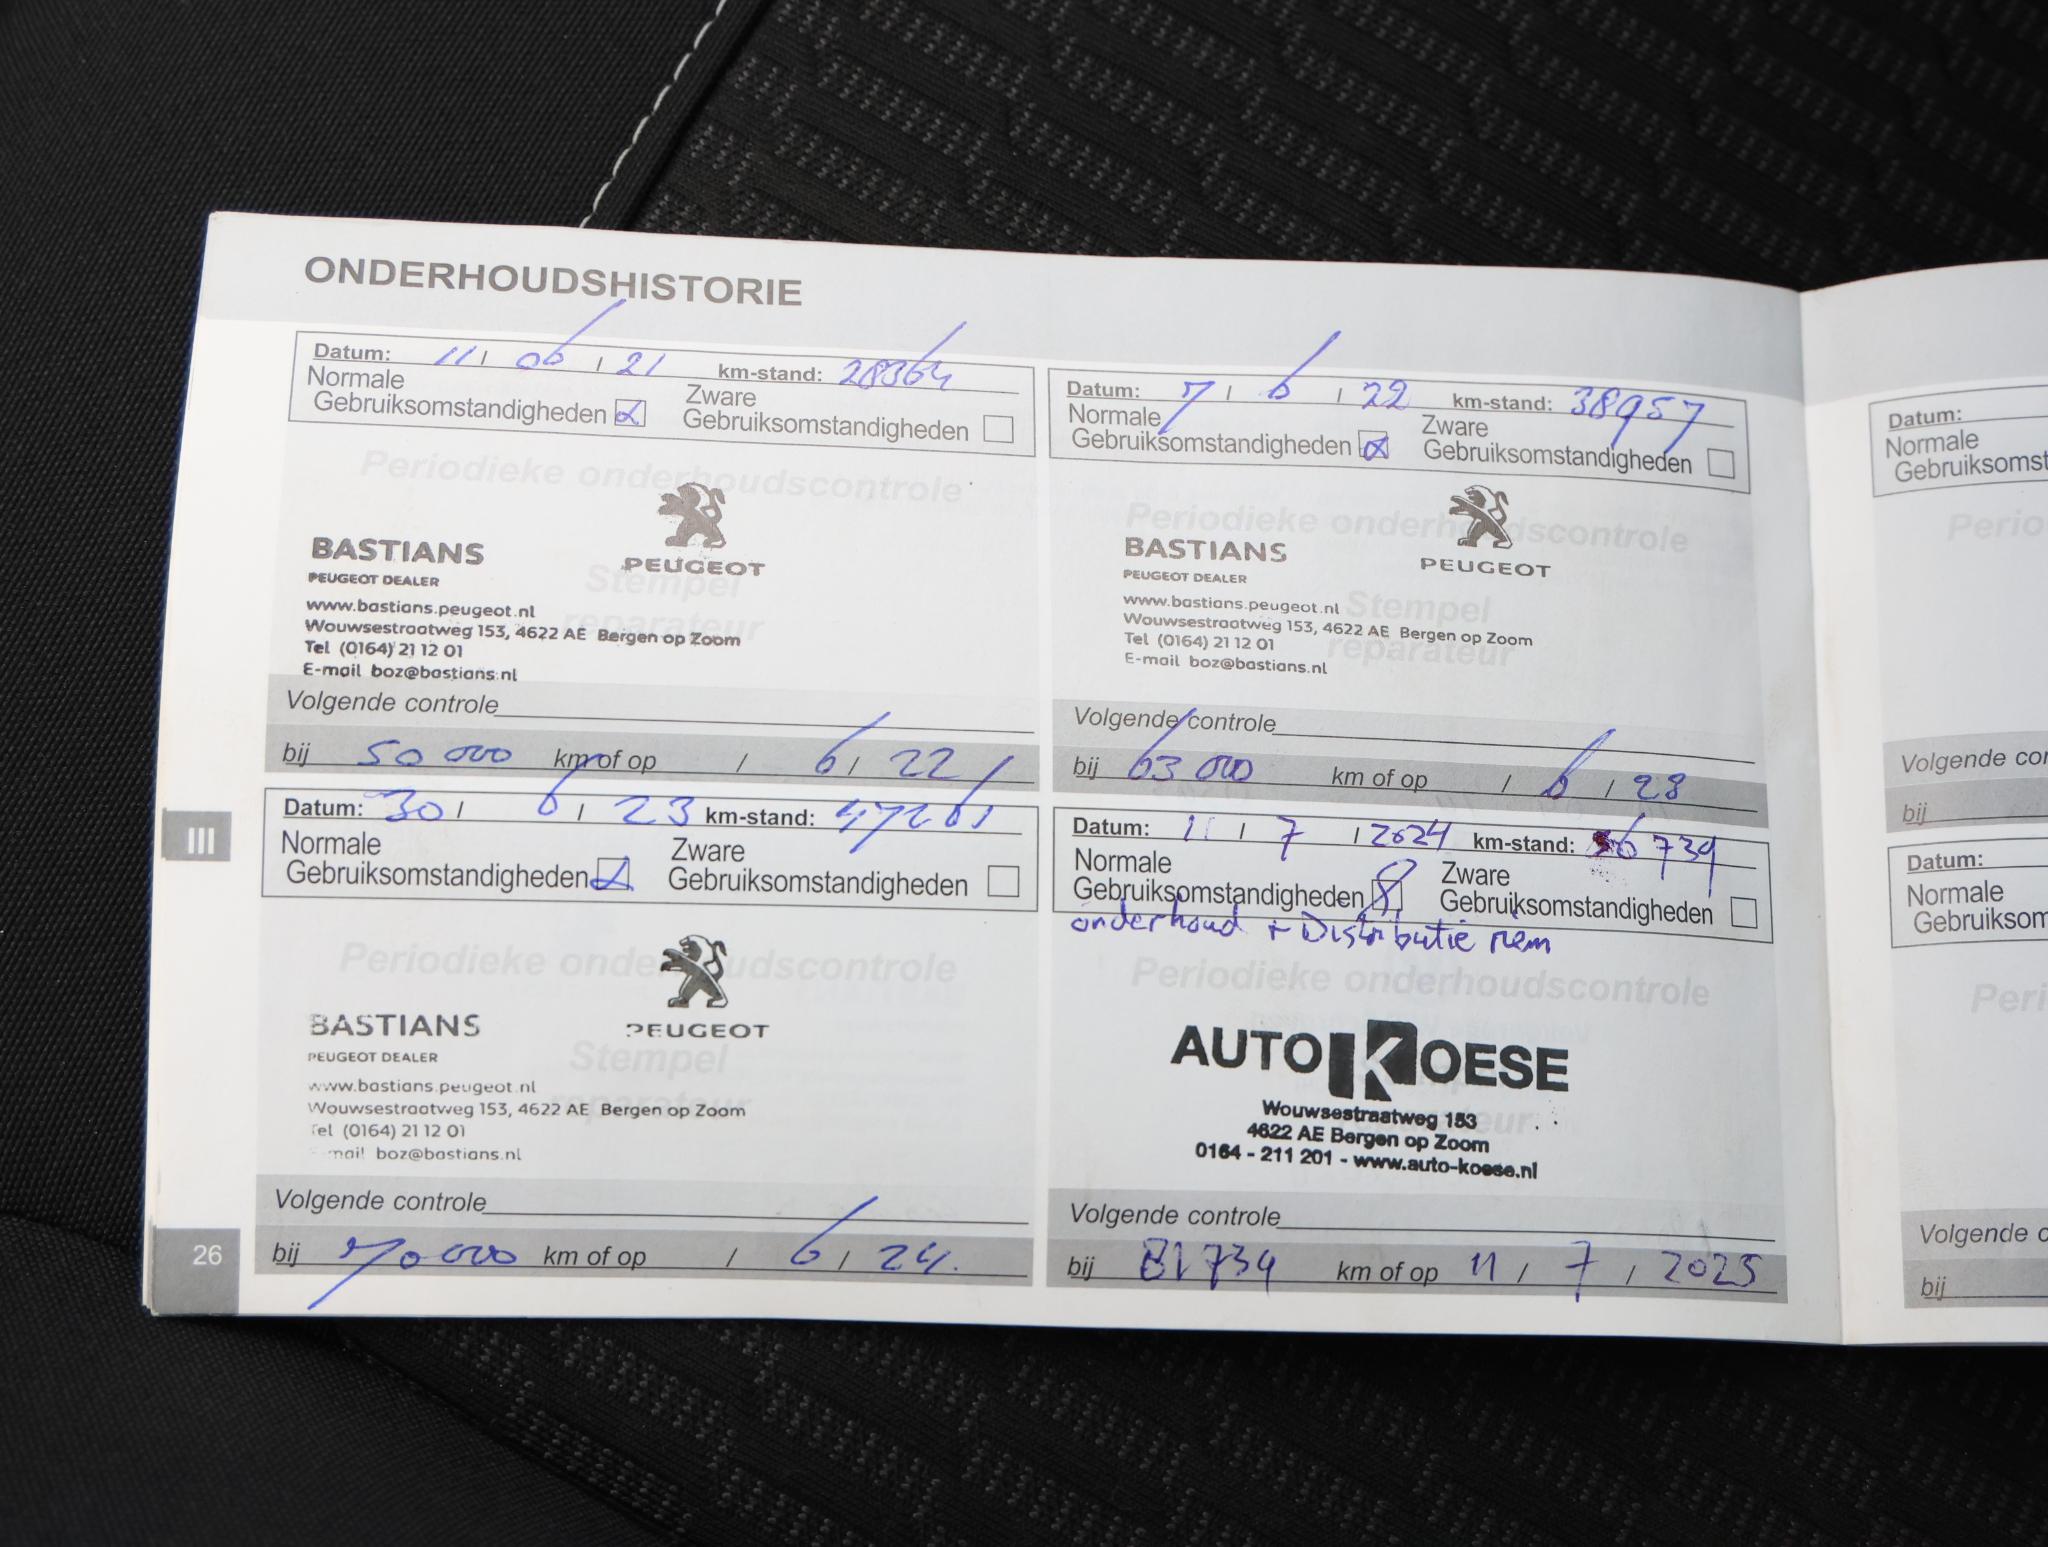 ONDERHOUDSHISTORIE
Datum: 11 / 06 / 21 km-stand: 28364
Normale Zware
Gebruiksomstandigheden Gebruiksomstandigheden
Periodieke onderhoudscontrole
PEUGEOT
BASTIANS
PEUGEOT DEALER
Stempel
reparateur
www.bastians.peugeot.nl
Wouwsestraatweg 153, 4622 AE Bergen op Zoom
Tel (0164) 21 12 01
E-mail boz@bastians.nl
Volgende controle
bij 50 000 km of op / 6 / 22
Datum: 7 / 6 / 22 km-stand: 38957
Normale Zware
Gebruiksomstandigheden Gebruiksomstandigheden
Periodieke onderhoudscontrole
BASTIANS
PEUGEOT
PEUGEOT DEALER
Stempel
reparateur
www.bastians.peugeot.nl
Wouwsestraatweg 153, 4622 AE Bergen op Zoom
Tel (0164) 21 12 01
E-mail boz@bastians.nl
Volgende controle
bij 63 000 km of op / 6 / 23
III
Datum: 30 / 6 / 23 km-stand: 47261
Normale Zware
Gebruiksomstandigheden Gebruiksomstandigheden
Periodieke onderhoudscontrole
BASTIANS
PEUGEOT
PEUGEOT DEALER
Stempel
reparateur
www.bastians.peugeot.nl
Wouwsestraatweg 153, 4622 AE Bergen op Zoom
Tel (0164) 21 12 01
mail boz@bastians.nl
Volgende controle
bij 70 000 km of op / 6 / 24.
26
Datum: 11 / 7 / 2024 km-stand: 56739
Normale Zware
Gebruiksomstandigheden Gebruiksomstandigheden
onderhoud + Distributie riem
Periodieke onderhoudscontrole
AUTO KOESE
Wouwsestraatweg 153
4622 AE Bergen op Zoom
0164 - 211 201 - www.auto-koese.nl
Volgende controle
bij 81734 km of op 11 / 7 / 2025
Datum:
Normale
Gebruiksomst
Perio
Volgende co
bij
Datum:
Normale
Gebruiksom
Peri
Volgende c
bij